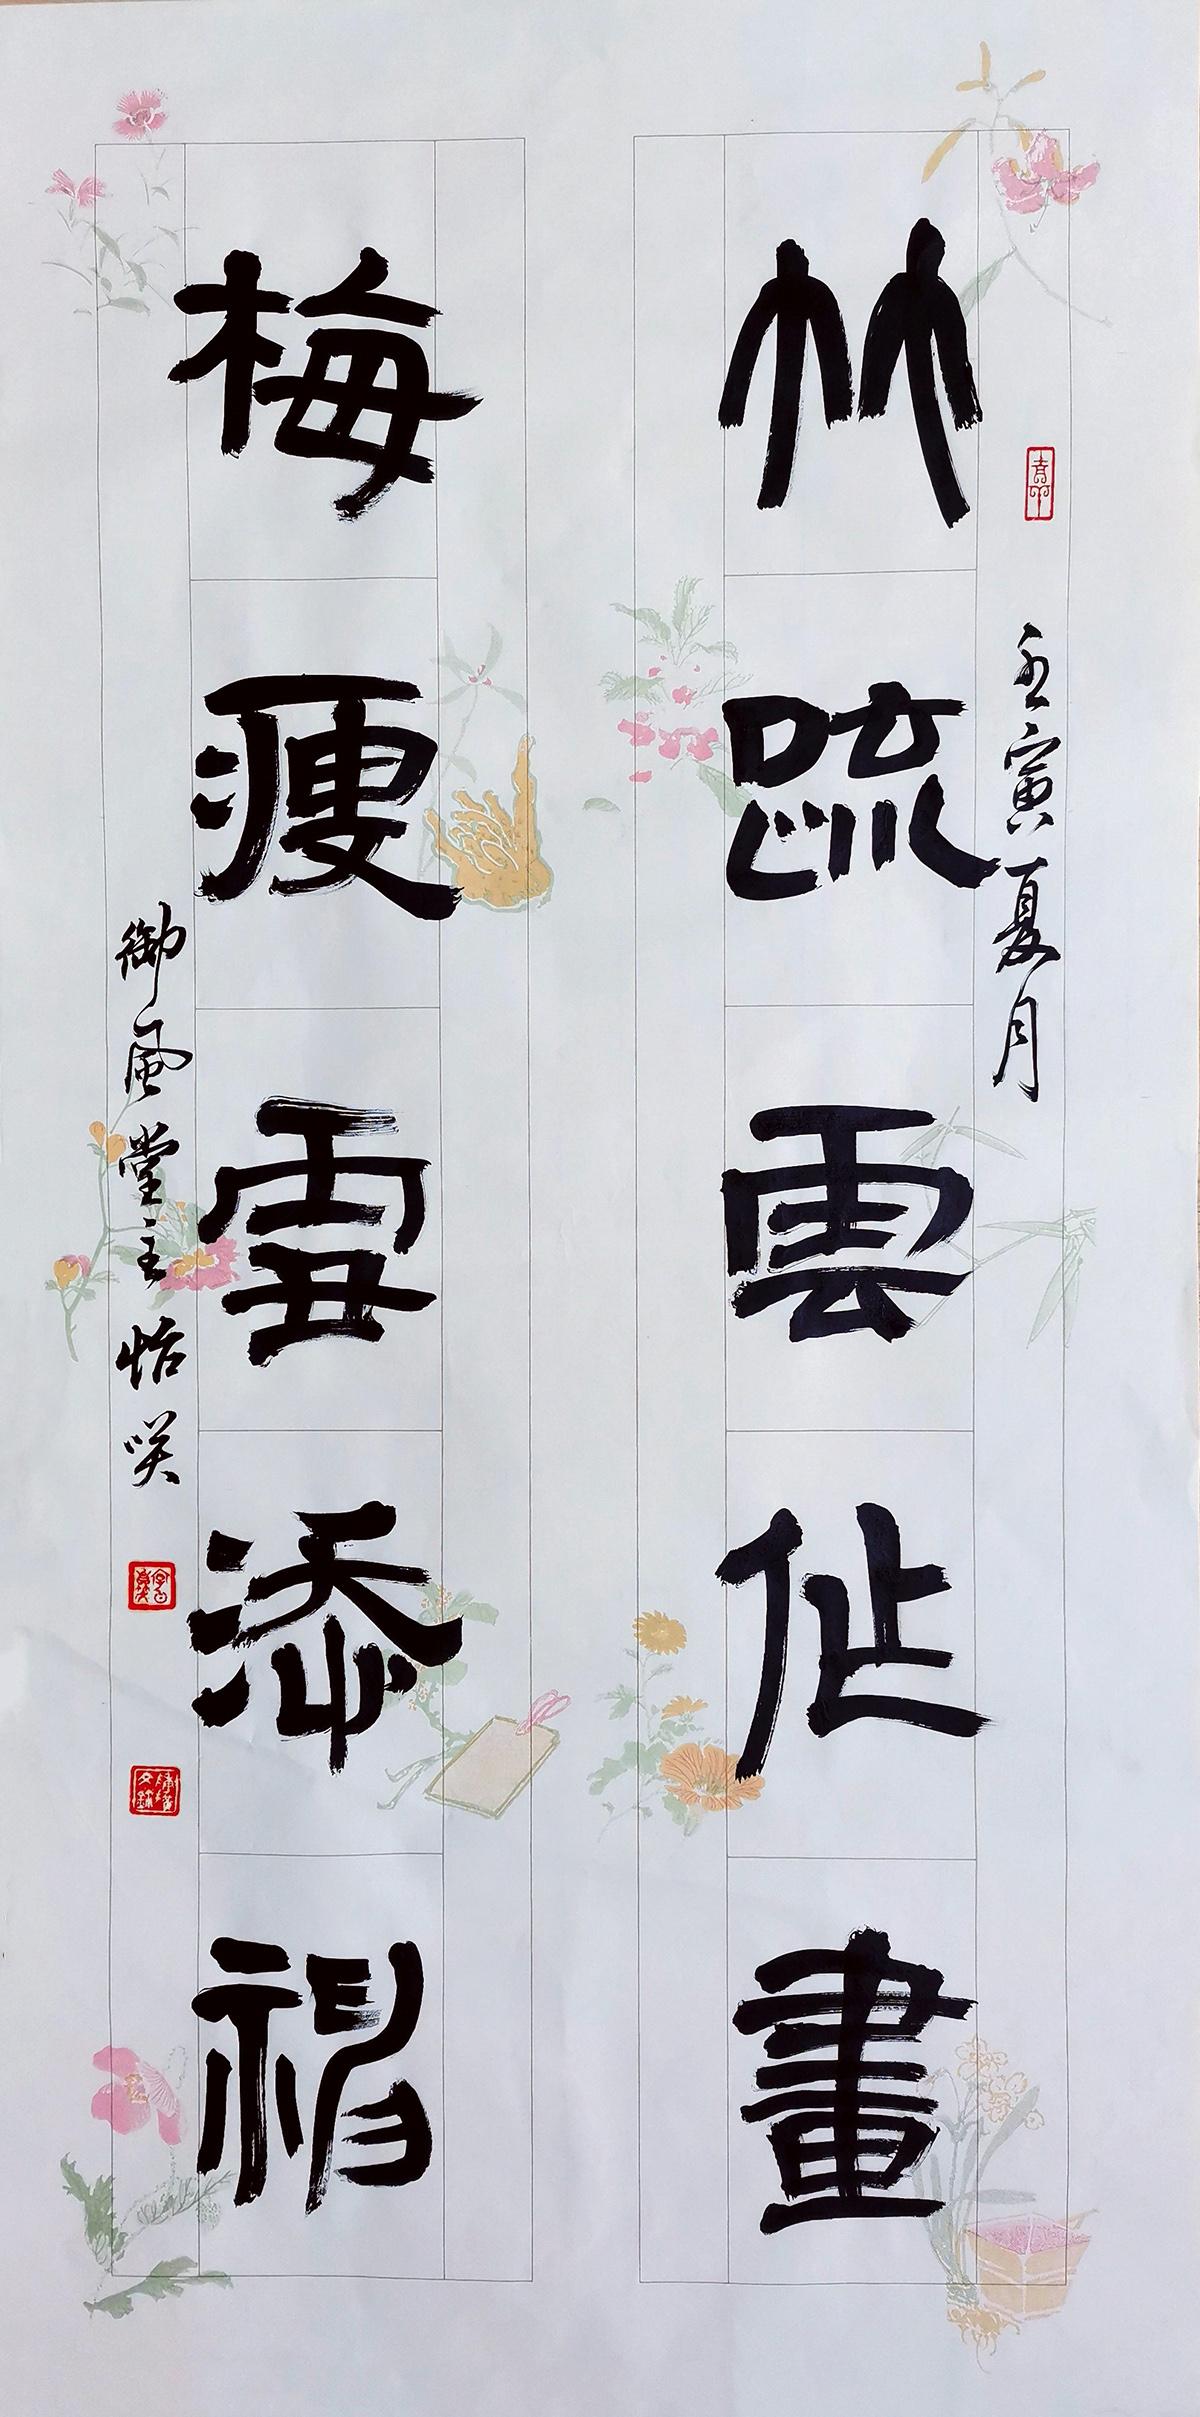 壬寅夏月
竹疏雲作畫
梅瘦雪添神
御風堂主怡咲